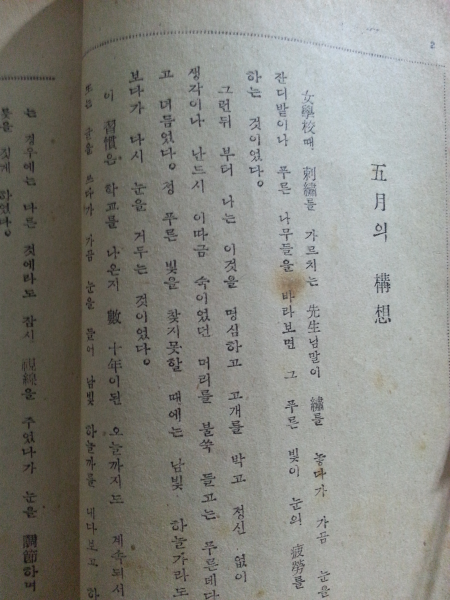 2
五月의 構想
女學校때 刺繡를 가르치는 先生님말이 繡를 놓다가 가끔 눈을
잔디밭이나 푸른 나무들을 바라보면 그 푸른 빛이 눈의 疲勞를
하는 것이었다。
그런뒤 부터 나는 이것을 명심하고 고개를 박고 정신 없이
생각이나 난드시 이따금 숙이었던 머리를 불쑥 들고는 푸른데다
고 더듬었다。 정 푸른 빛을 찾지못할 때에는 남빛 하늘가라도
보다가 다시 눈을 거두는 것이었다。
이 習慣은 학교를 나온지 數十年이된 오늘까지도 계속되서
또는 글을 쓰다가 가끔 눈을 들어 남빛 하늘가를 내다보고 하
는 경우에는 다른 것에라도 잠시 視線을 주었다가 눈을 調節하며
못을 짓게 하였다。